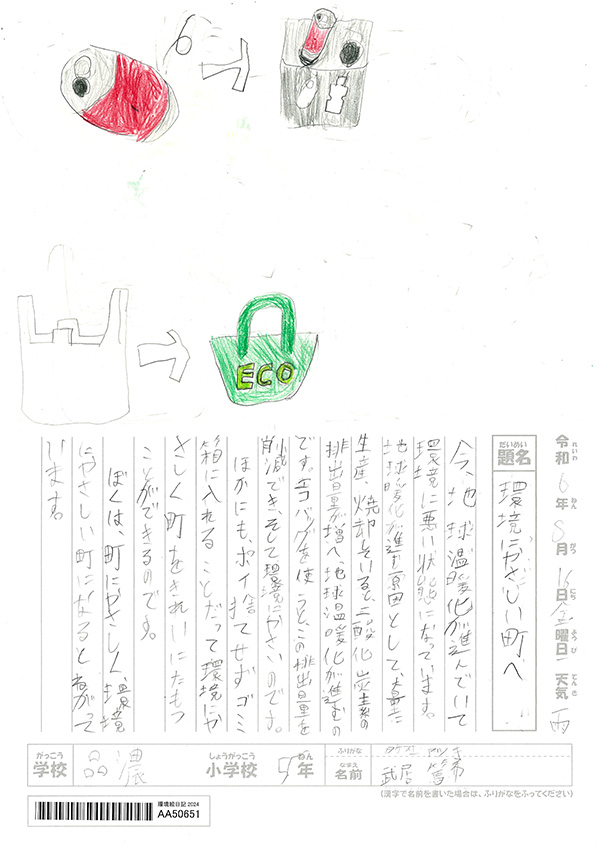 ECO
令和6年8月16日金曜日 天気 雨
れいわ ねん がつ にち ようび てんき
だいめい
題名
環境にやさしい町へ
今、地球温暖化が進んでいて
環境に悪い状態になっています。
地球温暖化が進む原因として
生産、焼却 していると、二酸化炭素の
排出量が増へ、地球温暖化が進むの
です。エコバッグを使うと、この排出量を
削減でき、そして環境にやさいのです。
ほかにも、ポイ捨てせずゴミ
箱に入れることだって環境にや
さしく町をきれいにたもつ
ことができるのです。
ぼくは、町にやさしく、環境
にやさしい町になると ねがって
います。
がっこう
学校
品濃
しょうがっこう
小学校
5年
ねん
ふりがな
なまえ
名前
武居
(漢字で名前を書いた場合は、ふりがなをふってください)
環境絵日記 2024
AA50651